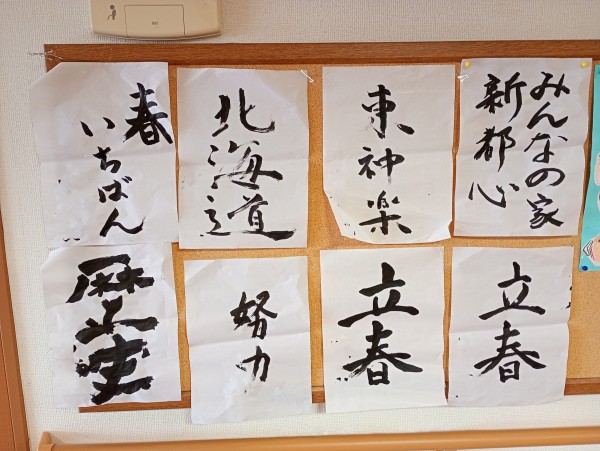 春
いちばん
北海道
東神楽
みんなの家
新都心
努力
立春
立春